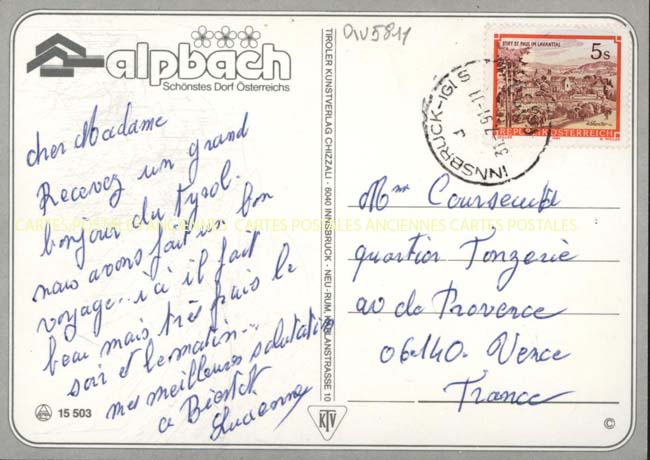 alpbach
Schönstes Dorf Österreichs
cher Madame
Recevez un grand
bonjour du Tyrol.
nous avons fait un bon
voyage.. ici il fait
beau mais très frais le
soir et le matin...
mes meilleures salutations
a Bientot
15 503
TIROLER KUNSTVERLAG CHIZZALI · 6040 INNSBRUCK - NEU-RUM, KAPLANSTRASSE 10
KTV
OIV5811
STIFT ST. PAUL IM LAVANTTAL
5s
REPUBLIK ÖSTERREICH
INNSBRUCK-IGLS
Mme
quartier Tonzerie
av de Provence
06140. Vence
France
©
CARTES POSTALES ANCIENNES CARTES POSTALES ANCIENNES CARTES POSTALES